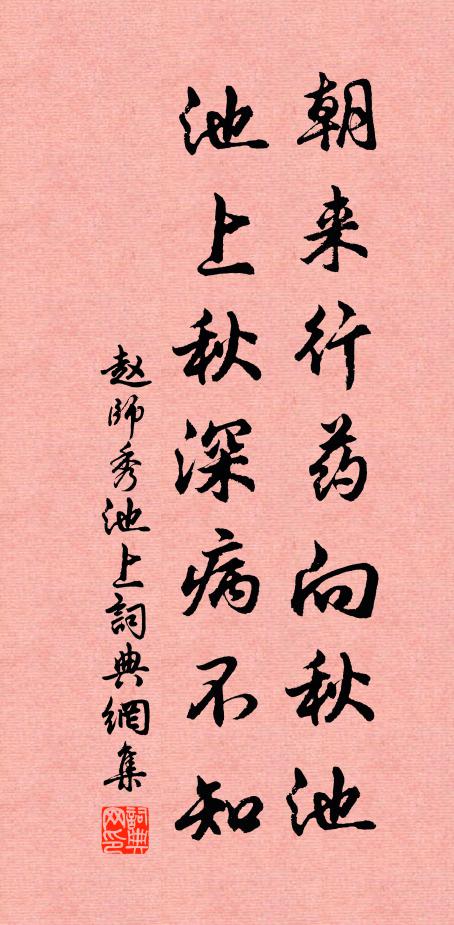 朝来行药向秋池
池上秋深病不知
赵师秀池上詞典網集
詞典网印